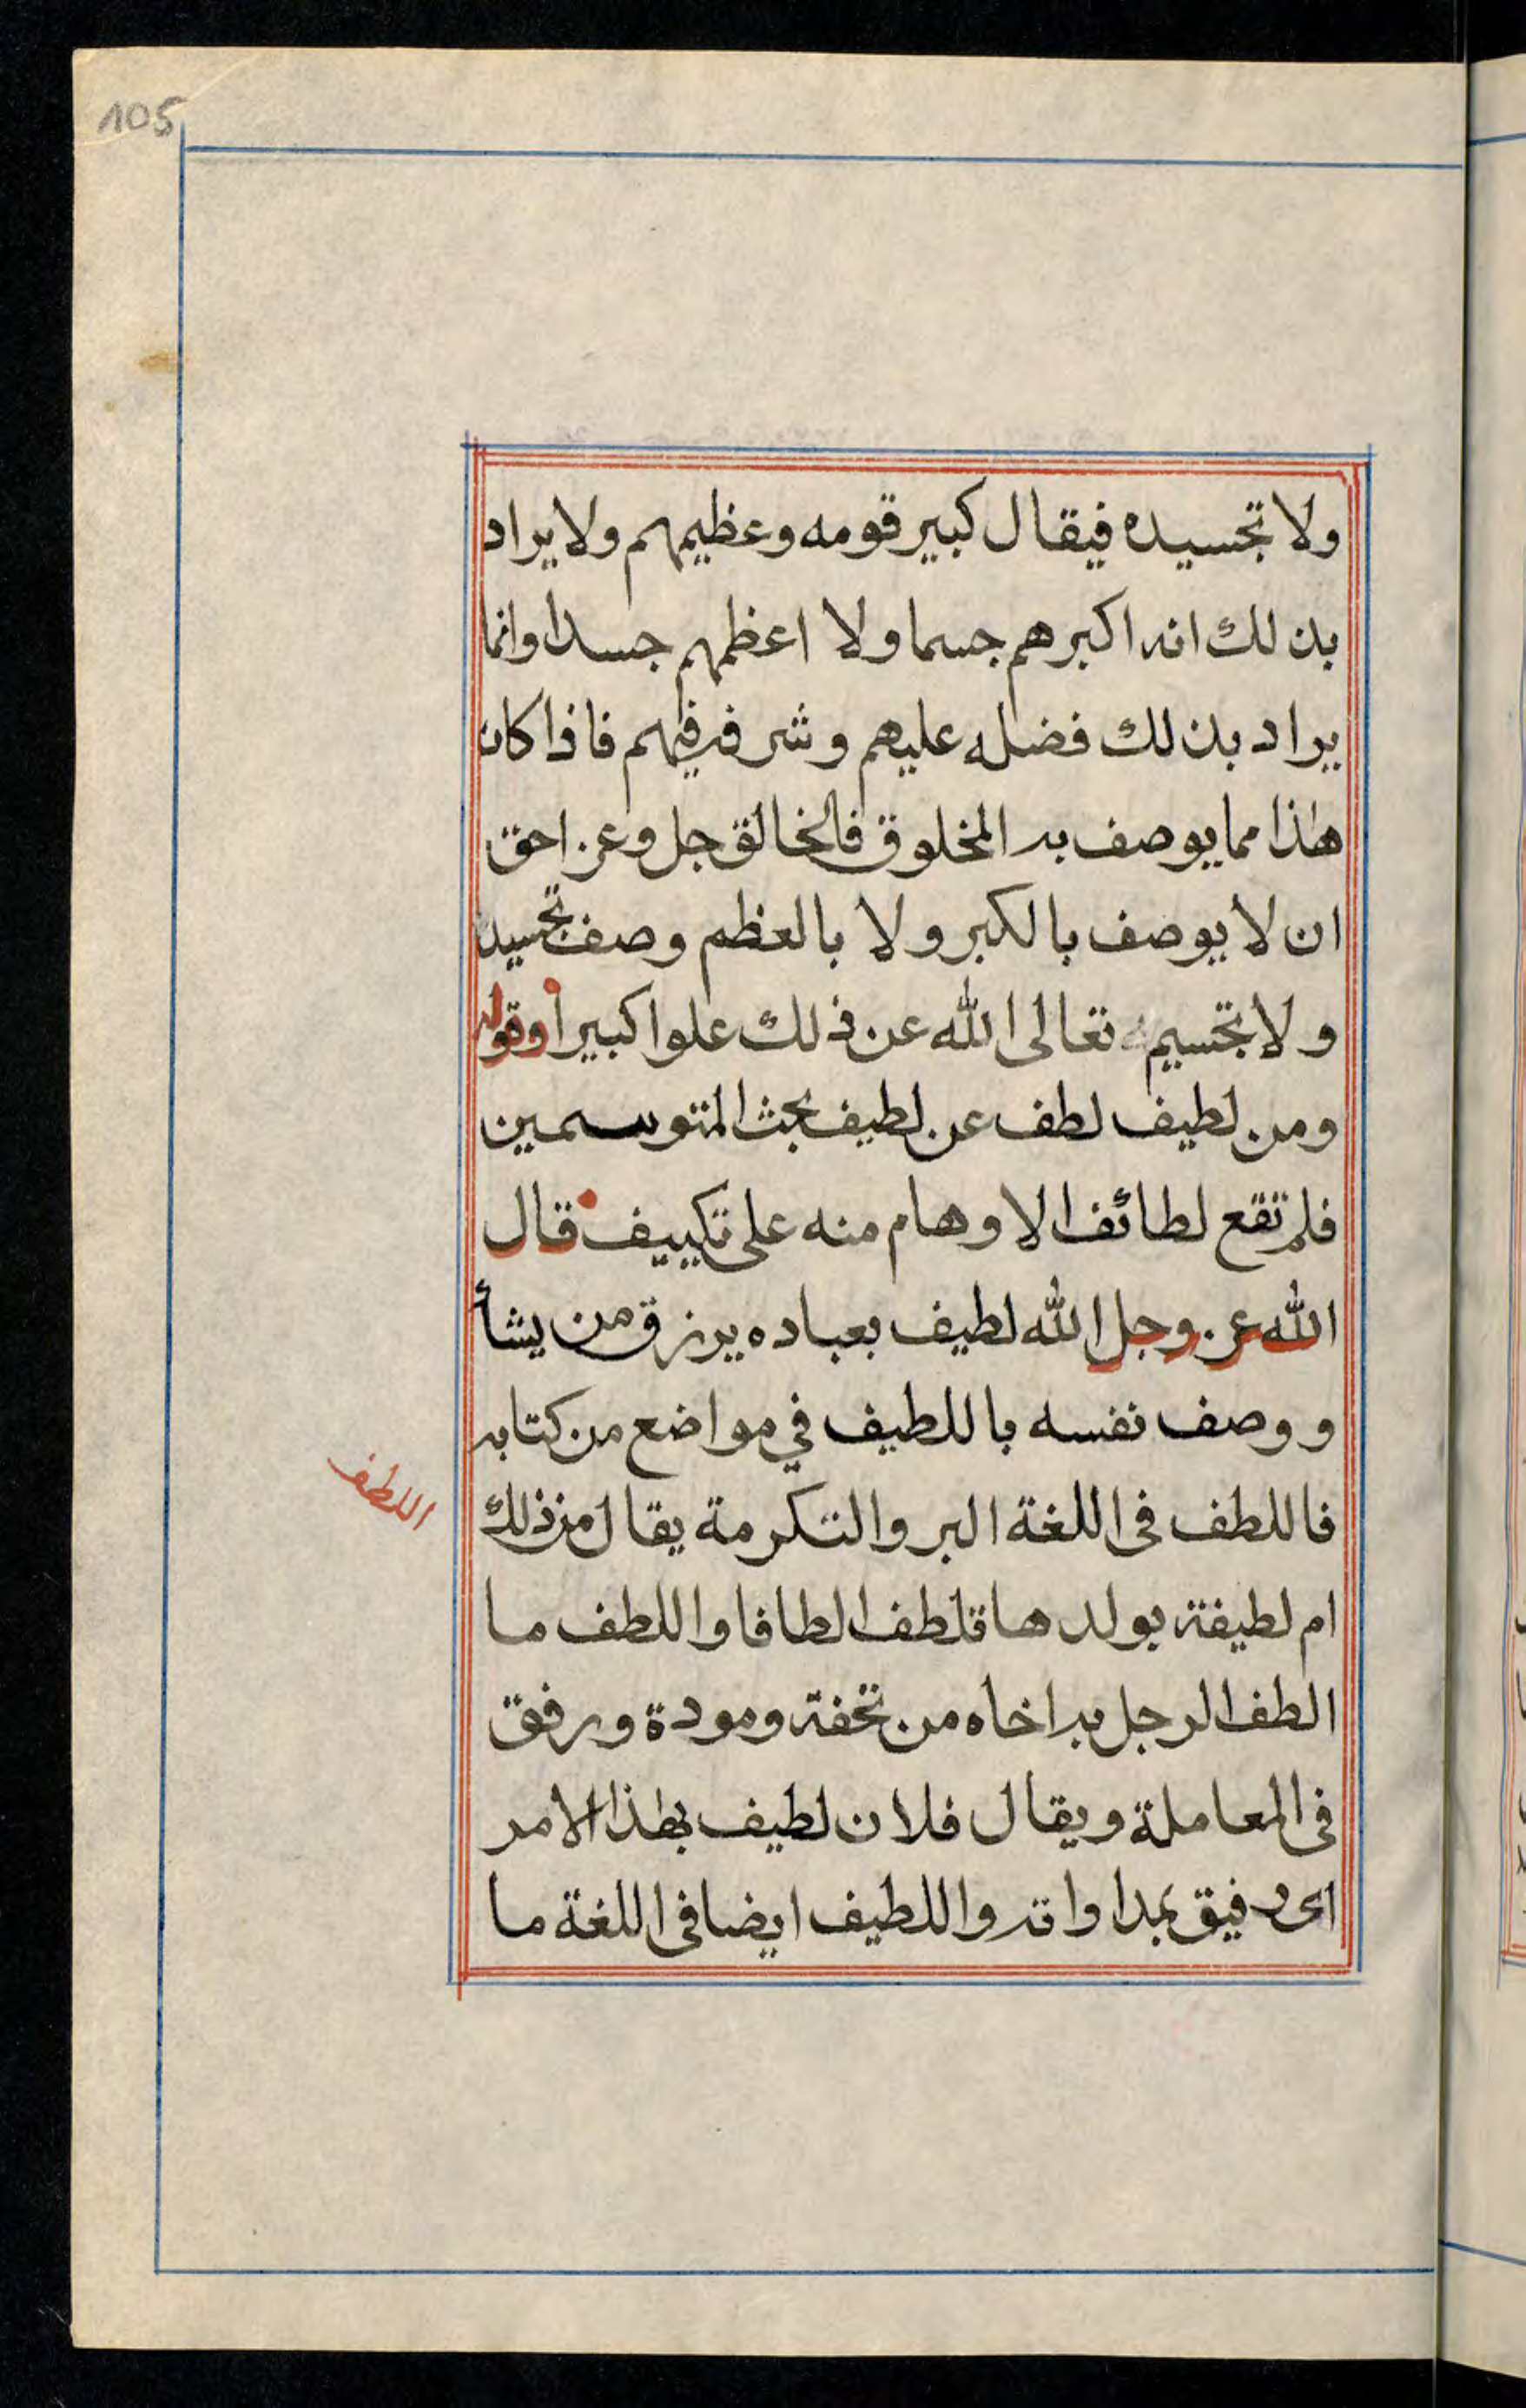 105
ولا تجسيده فيقال كبير قومه وعظيمهم ولا يراد
بذلك انه اكبرهم جسما ولا اعظمهم جسدا وانما
يراد بذلك فضله عليهم وشرفه فيهم فاذا كان
هذا مما يوصف به المخلوق فالخالق جل وعز احق
ان لا يوصف بالكبر ولا بالعظم وصف تجسيد
ولا تجسيم تعالى الله عن ذلك علوا كبيرا وقوله
ومن لطيف لطف عن لطيف بحث المتوسمين
فلم تقع لطائف الاوهام منه على تكييف قال
الله عز وجل الله لطيف بعباده يرزق من يشأ
ووصف نفسه باللطيف في مواضع من كتابه
فاللطف فى اللغة البر والتكرمة يقال من ذلك
اللطف
ام لطيفة بولدها تلطف الطافا واللطف ما
الطف الرجل به اخاه من تحفة ومودة ورفق
فى المعاملة ويقال فلان لطيف بهذا الامر
اى رفيق بمداواته واللطيف ايضا فى اللغة ما